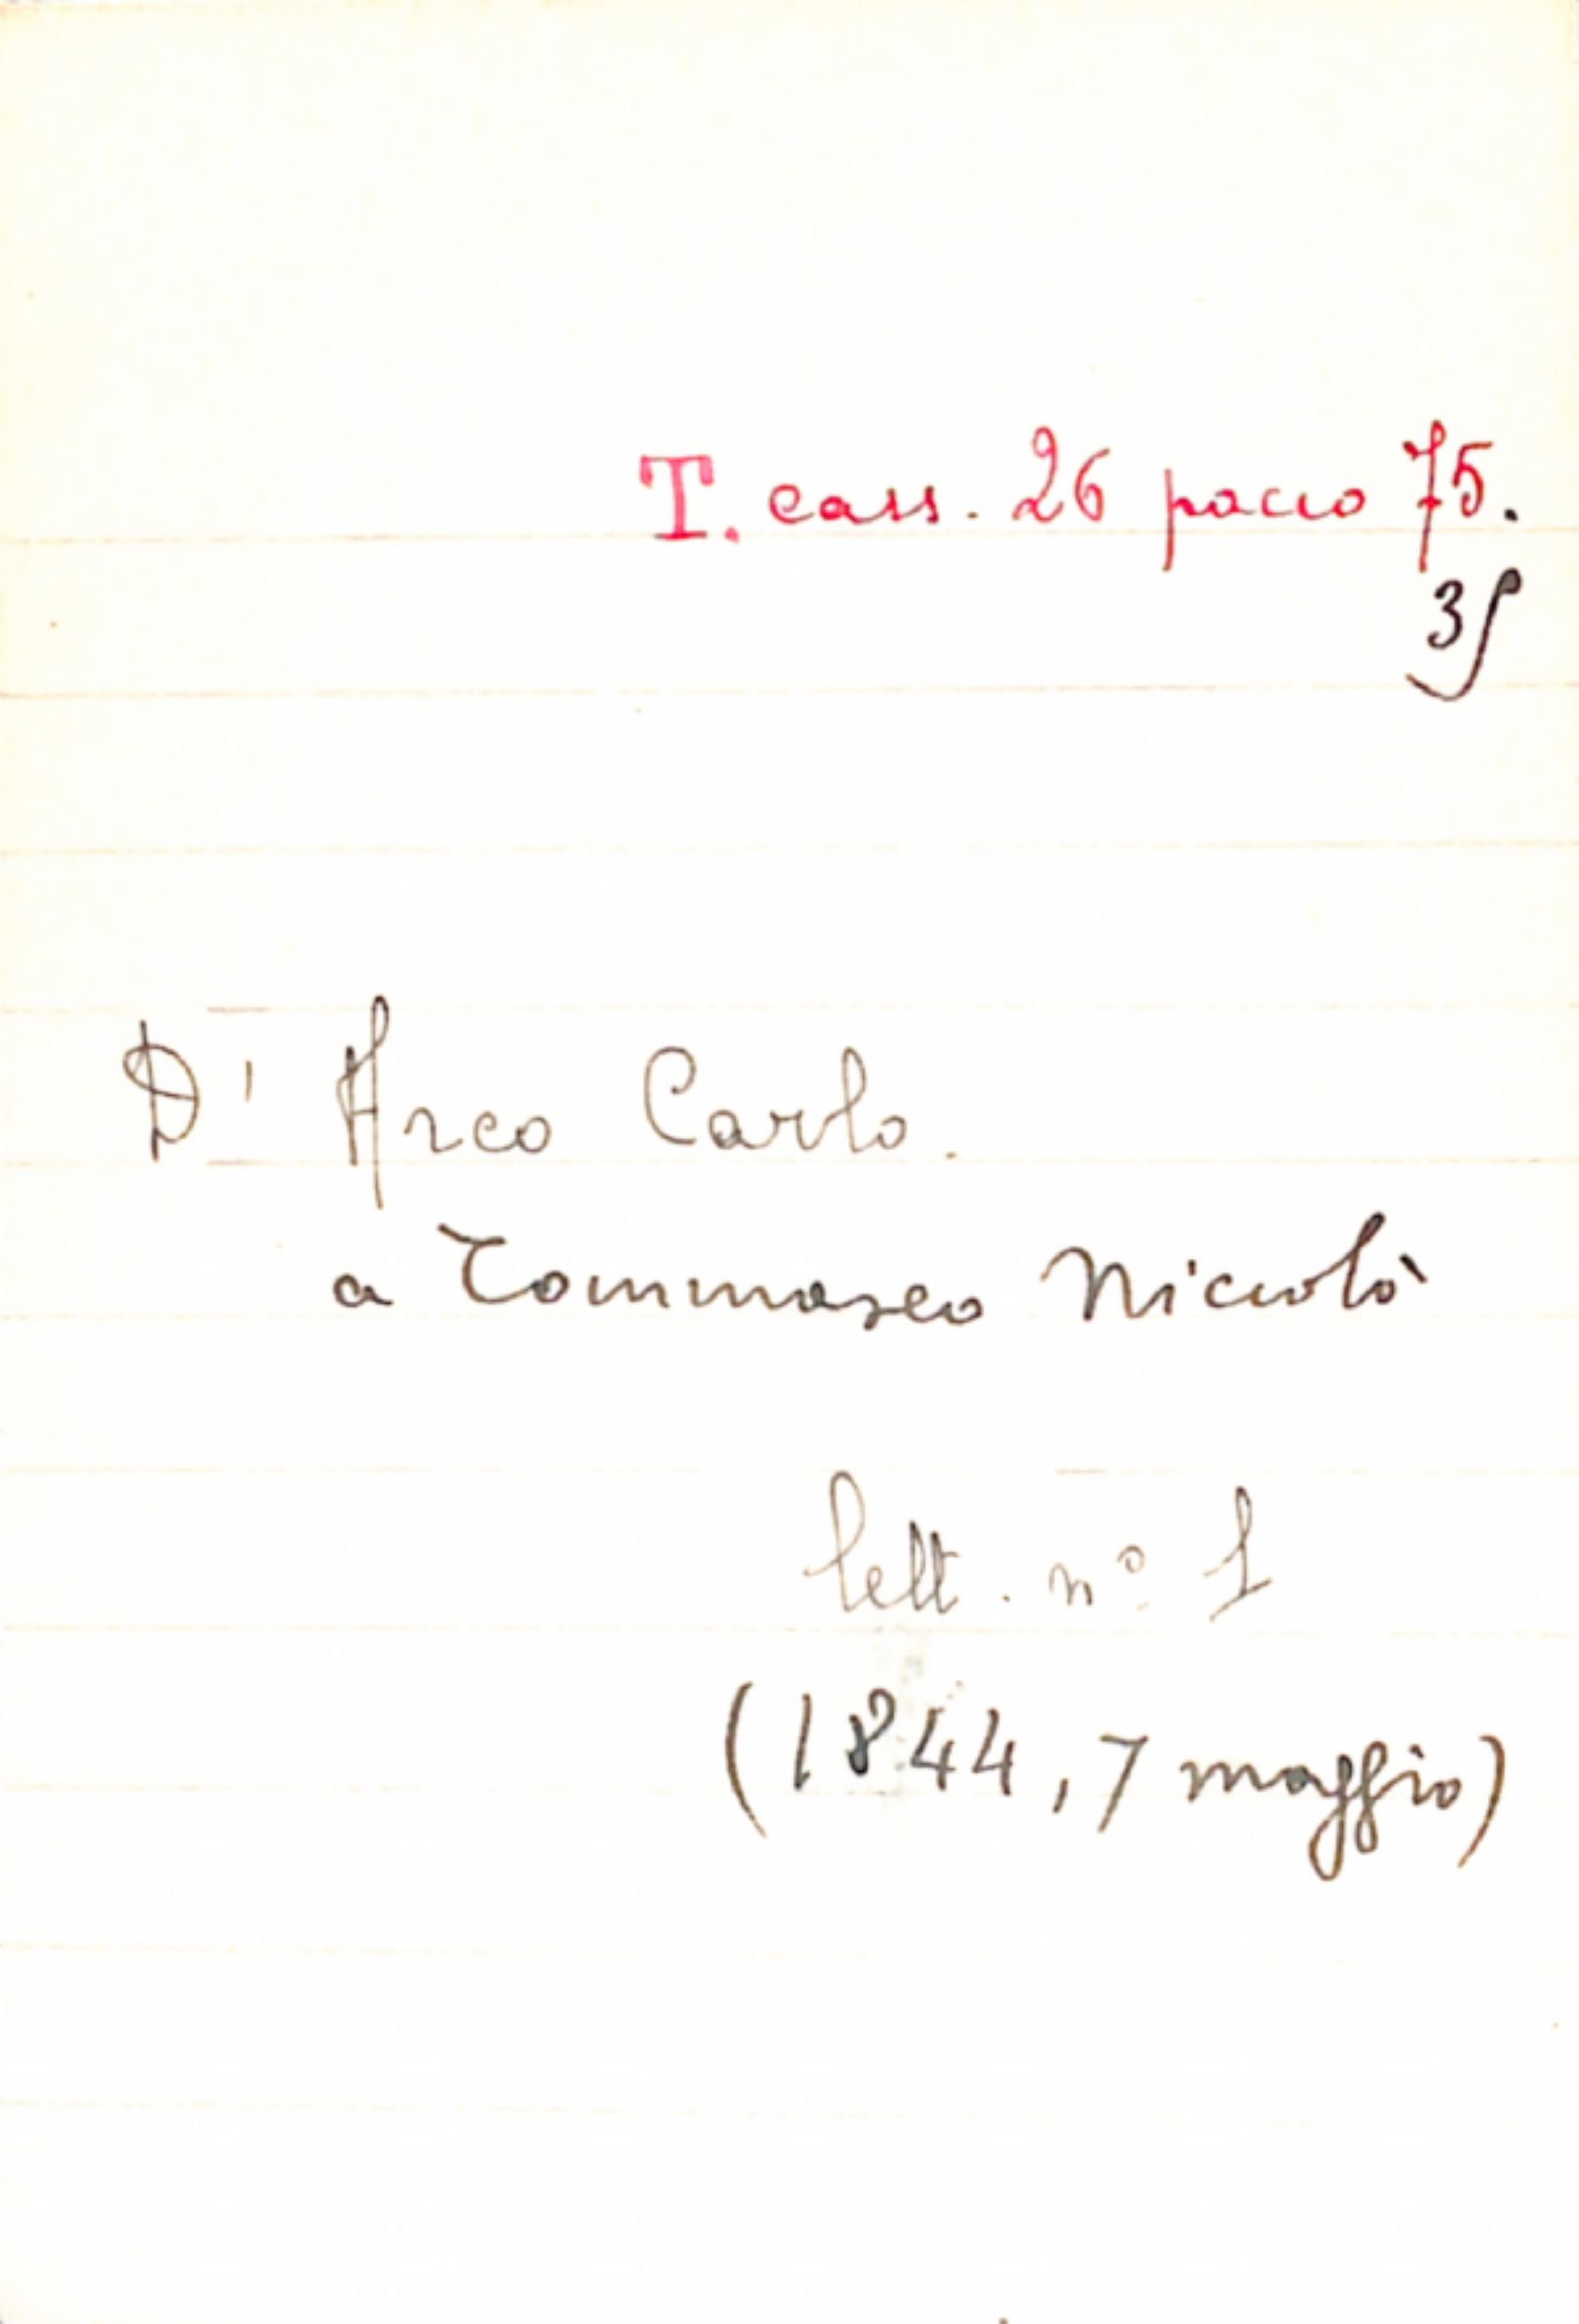 T. cass. 26 pacco 75.
3)
D' Arco Carlo.
a Tommaseo Niccolò
lett. n° 1
(1844, 7 maggio)